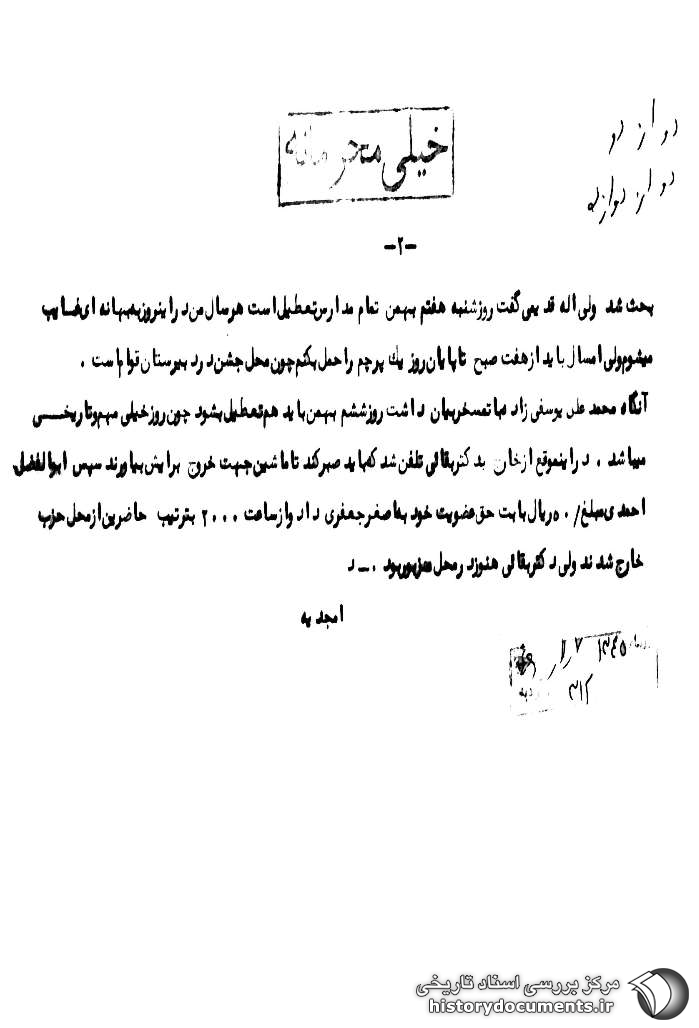 خیلی محرمانه
دو از دو
دو از دوازده
-۲-
بحث شد ولی اله قدیمی گفت روز شنبه هفتم بهمن تمام مدارس تعطیل است هر سال من در اینروز به بهانه ای غایب
میشوم ولی امسال باید از هفت صبح تا پایان روز یک پرچم را حمل بکنم چون محل جشن در دبیرستان قوام است .
آنگاه محمد علی یوسفی زاده با تمسخر بیان داشت روز ششم بهمن باید هم تعطیل بشود چون روز خیلی مهم و تاریخی
میباشد . در اینموقع از خان به دکتر بقائی تلفن شد که باید صبر کند تا ماشین جهت خروج برایش بیاورند سپس ابوالفضل
احمدی مبلغ /۵۰ ریال بابت حق عضویت خود به اصغر جعفری داد و از ساعت ۲۰۰۰ بترتیب حاضرین از محل حزب
خارج شدند ولی دکتر بقائی هنوز در محل مزبور بود . ـ د
امجدیه
۱۳۴۵
۳۱۲
مرکز بررسی اسناد تاریخی
historydocuments.ir